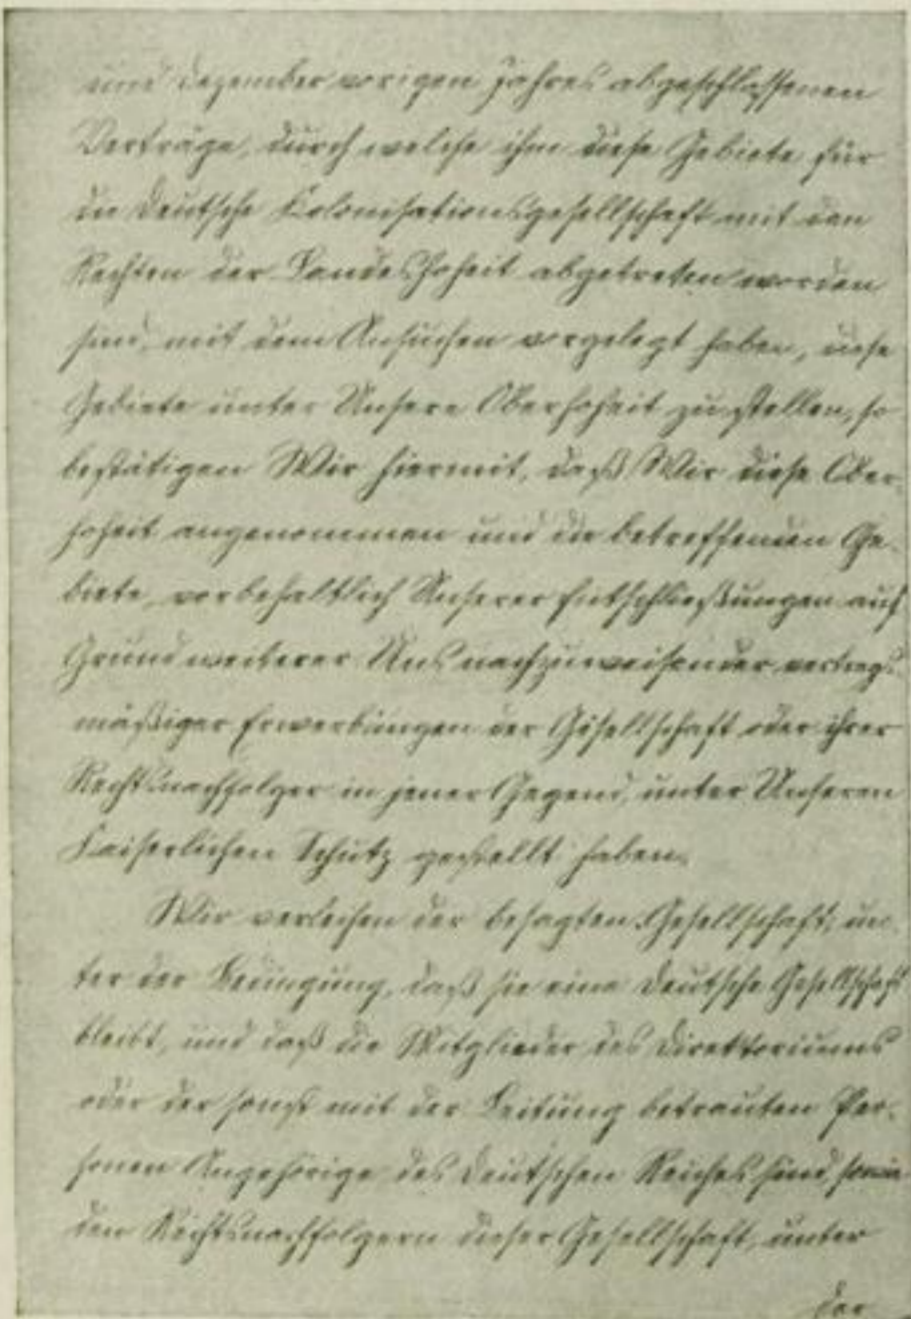 und Dezember vorigen Jahres abgeschlossenen
Verträge, durch welche ihm diese Gebiete für
die Deutsche Kolonisationsgesellschaft mit den
Rechten der Landeshoheit abgetreten worden
sind, mit dem Ansuchen vorgelegt haben, diese
Gebiete unter Unsere Oberhoheit zu stellen, so
bestätigen Wir hiermit, daß Wir diese Ober-
hoheit angenommen und die betreffenden Ge-
biete, vorbehaltlich Unserer Entschließungen auf
Grund weiterer Uns nachzuweisender vertrags-
mäßiger Erwerbungen der Gesellschaft oder ihrer
Rechtsnachfolger in jener Gegend, unter Unseren
Kaiserlichen Schutz gestellt haben.
Wir verleihen der besagten Gesellschaft, un-
ter der Bedingung, daß sie eine Deutsche Gesellschaft
bleibt, und daß die Mitglieder des Direktoriums
oder der sonst mit der Leitung betrauten Per-
sonen Angehörige des Deutschen Reiches sind, sowie
den Rechtsnachfolgern dieser Gesellschaft, unter
der